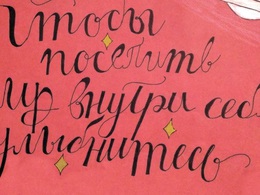 Чтобы
поселить
мир внутри себя
улыбнитесь